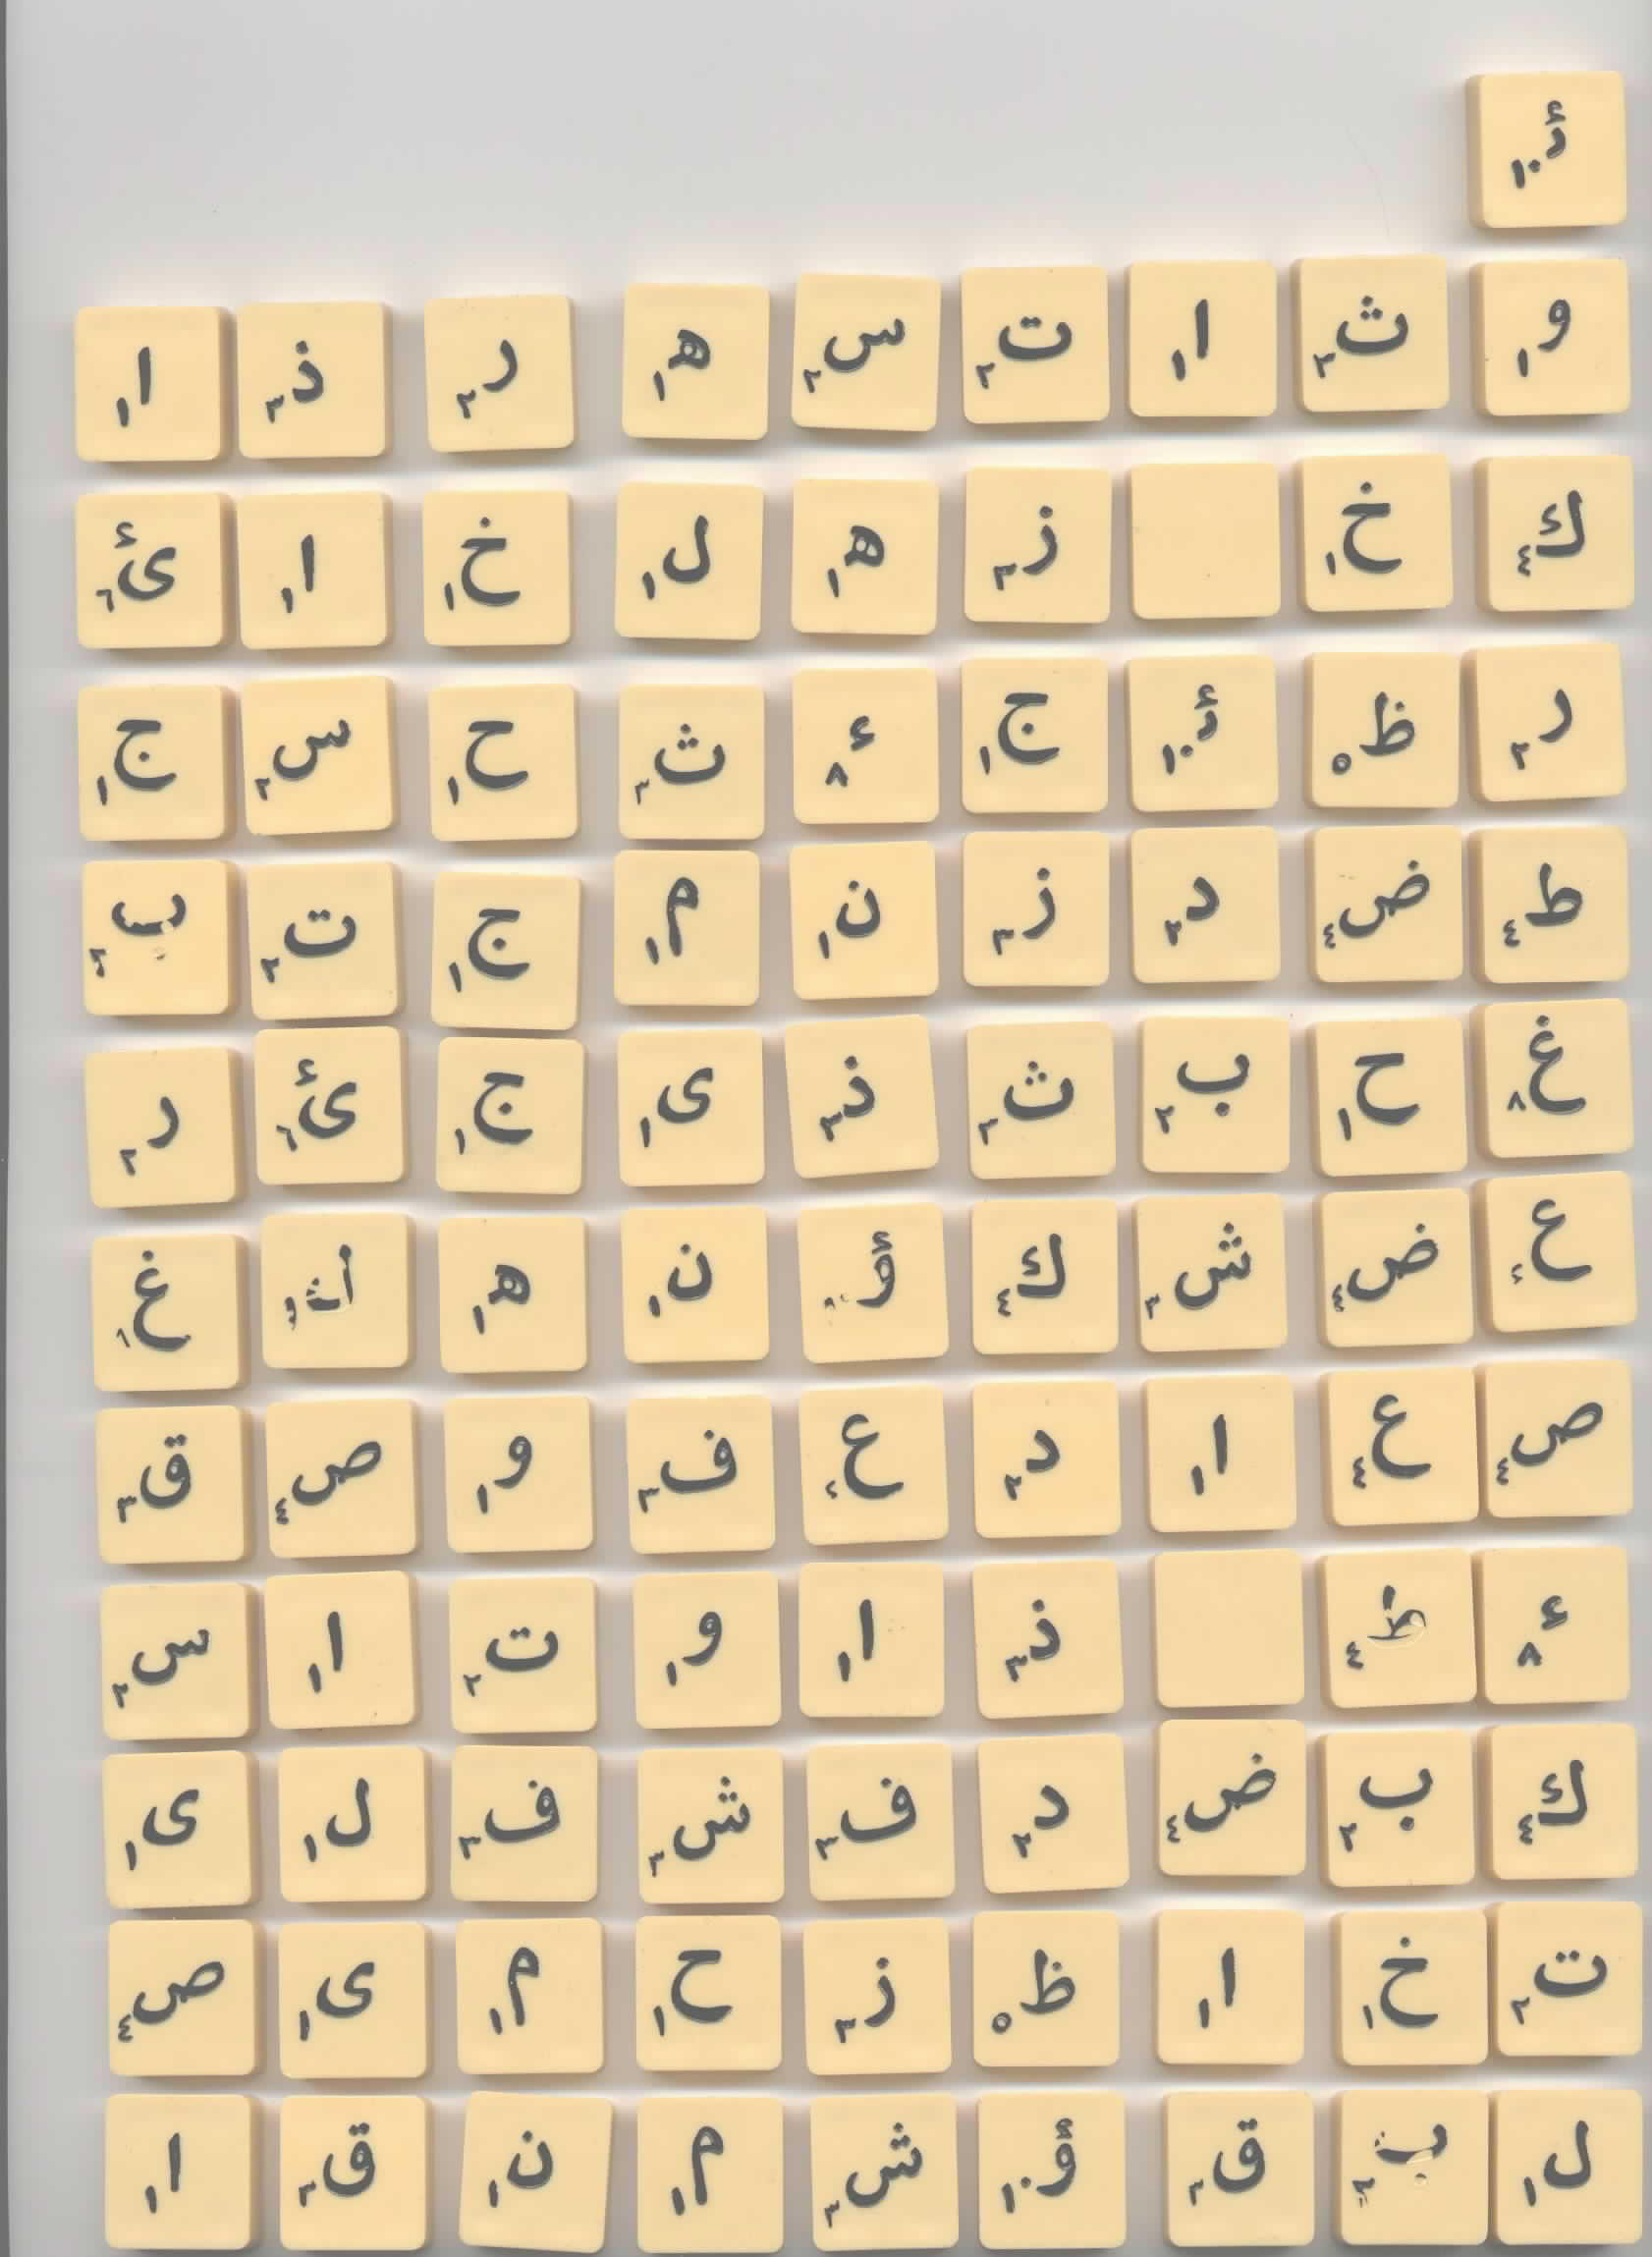 ئ ١٠
و ١ ث ٣ ا ١ ت ٢ س ٢ ه ١ ر ٢ ذ ٣ ا ١
ك ٤ خ ١ ز ٣ ه ١ ل ١ خ ١ ا ١ ئ ٦
ر ٢ ظ ٥ ج ١ ء ٨ ث ٣ ح ١ س ٢ ج ١
ط ٤ ض ٤ د ٢ ز ٣ ن ١ م ١ ج ١ ت ٢ ب ٢
غ ٨ ح ١ ب ٢ ث ٣ ذ ٣ ى ١ ج ١ ئ ٦ ر ٢
ع ٤ ض ٤ ش ٣ ك ٤ ؤ ن ١ ه ١ غ ٨
ص ٤ ع ٤ ا ١ د ٢ ع ٤ ف ٣ و ١ ص ٤ ق ٣
ء ٨ ط ٤ ذ ٣ ا ١ و ١ ت ٢ ا ١ س ٢
ك ٤ ب ٢ ض ٤ د ٢ ف ٣ ش ٣ ف ٣ ل ١ ى ١
ت ٢ خ ١ ا ١ ظ ٥ ز ٣ ح ١ م ١ ى ١ ص ٤
ل ١ ب ٢ ق ٣ ؤ ١٠ ش ٣ م ١ ن ١ ق ٣ ا ١